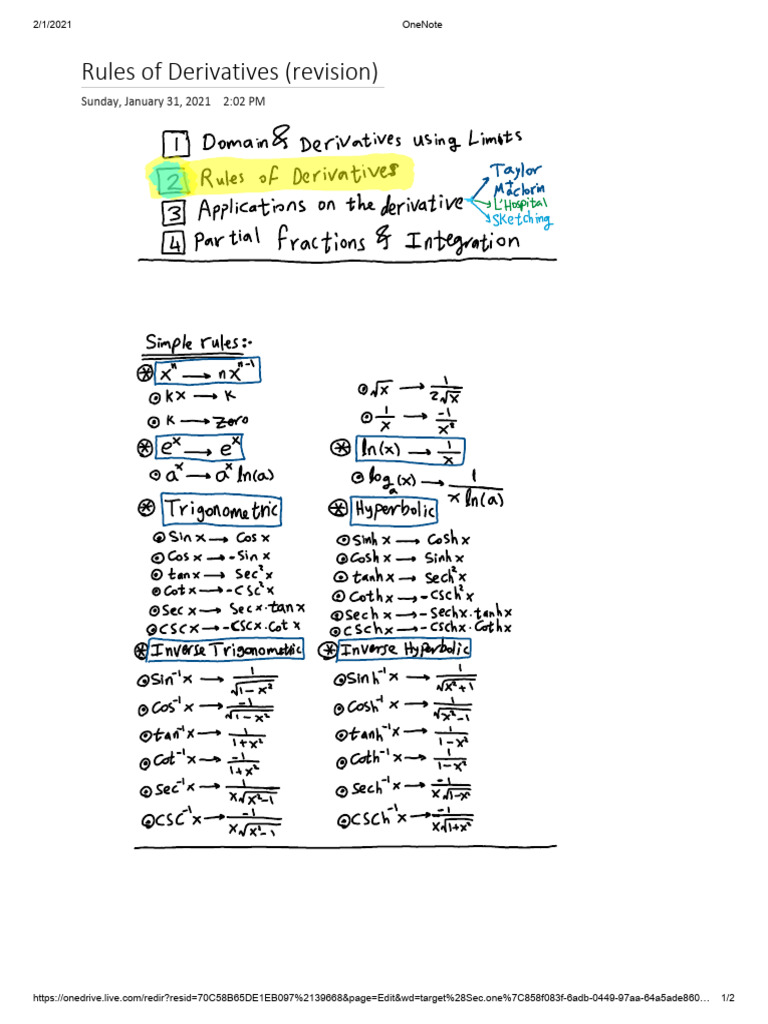 2/1/2021 OneNote
Rules of Derivatives (revision)
Sunday, January 31, 2021 2:02 PM
1 Domain & Derivatives using Limits
2 Rules of Derivatives
3 Applications on the derivative → Taylor
→ Maclorin
→ L'Hospital
→ Sketching
4 Partial fractions & Integration
Simple rules:-
⊛ xⁿ → nxⁿ⁻¹
⊙ kx → k
⊙ k → Zero
⊙ √x → 1/(2√x)
⊙ 1/x → -1/x²
⊛ eˣ → eˣ
⊙ aˣ → aˣ ln(a)
⊛ ln(x) → 1/x
⊙ logₐ(x) → 1/(x ln(a))
⊛ Trigonometric
⊙ Sin x → Cos x
⊙ Cos x → -Sin x
⊙ tan x → Sec² x
⊙ Cot x → -CSC² x
⊙ Sec x → Sec x · tan x
⊙ CSC x → -CSC x · Cot x
⊛ Hyperbolic
⊙ Sinh x → Cosh x
⊙ Cosh x → Sinh x
⊙ tanh x → Sech² x
⊙ Coth x → -CSCh² x
⊙ Sech x → -Sech x · tanh x
⊙ CSCh x → -CSCh x · Coth x
⊛ Inverse Trigonometric
⊙ Sin⁻¹ x → 1/√(1-x²)
⊙ Cos⁻¹ x → -1/√(1-x²)
⊙ tan⁻¹ x → 1/(1+x²)
⊙ Cot⁻¹ x → -1/(1+x²)
⊙ Sec⁻¹ x → 1/(x√(x²-1))
⊙ CSC⁻¹ x → -1/(x√(x²-1))
⊛ Inverse Hyperbolic
⊙ Sinh⁻¹ x → 1/√(x²+1)
⊙ Cosh⁻¹ x → 1/√(x²-1)
⊙ tanh⁻¹ x → 1/(1-x²)
⊙ Coth⁻¹ x → 1/(1-x²)
⊙ Sech⁻¹ x → -1/(x√(1-x²))
⊙ CSCh⁻¹ x → -1/(x√(1+x²))
https://onedrive.live.com/redir?resid=70C58B65DE1EB097%2139668&page=Edit&wd=target%28Sec.one%7C858f083f-6adb-0449-97aa-64a5ade860… 1/2